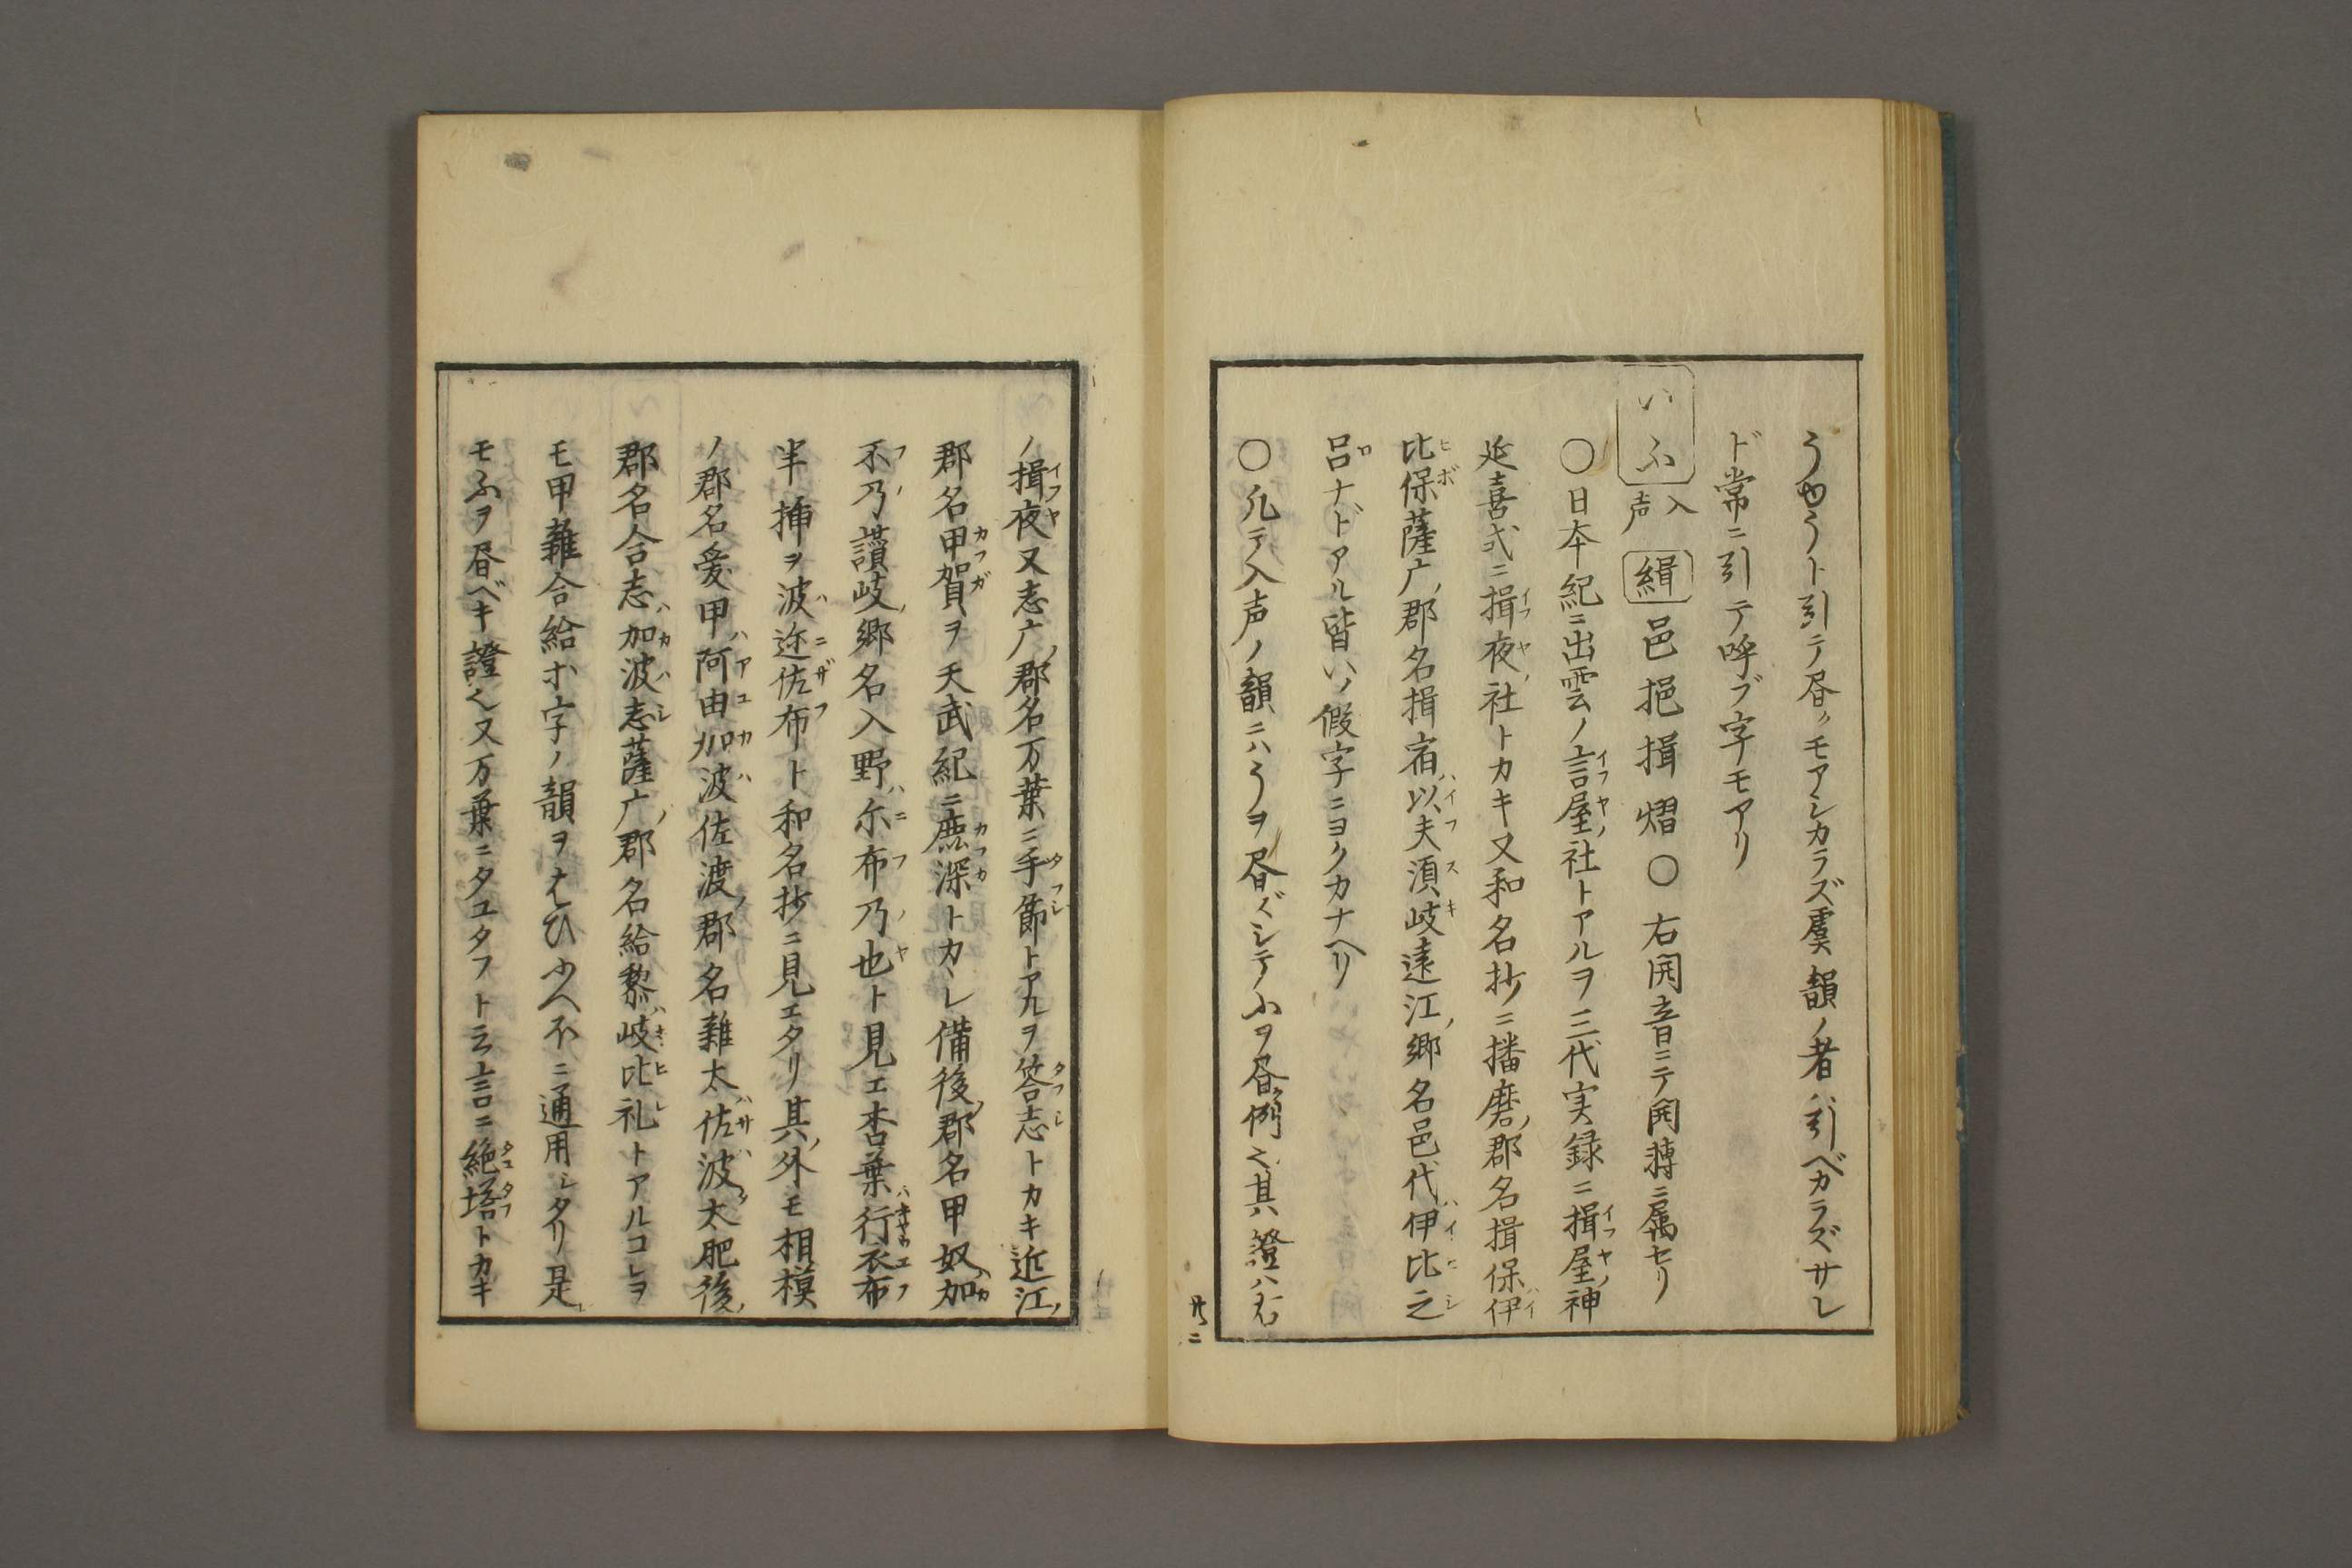 うゆうト引テ昼クモアシカラズ虞韻ノ者ハ引ベカラズサレ
ド常ニ引テ呼ブ字モアリ
いふ 入声 緝 邑挹揖熠〇右開音ニテ開轉ニ属セリ
〇日本紀ニ出雲ノ言屋ノ社トアルヲ三代実録ニ揖屋ノ神
延喜式ニ揖夜ノ社トカキ又和名抄ニ播磨ノ郡名揖保ハ伊
比保薩广ノ郡名揖宿ハ以夫須岐遠江ノ郷名邑代ハ伊比之
呂ナドアル皆いノ假字ニヨクカナヘリ
〇凡テ入声ノ韻ニハうヲ昼ズシテふヲ昼ク例也其證ハ右
ノ揖夜又志广ノ郡名万葉ニ手節トアルヲ答志トカキ近江ノ
郡名甲賀ヲ天武紀ニ鹿深トカヽレ備後ノ郡名甲奴ハ加
不乃讃岐ノ郷名入野ハ尓布乃也ト見エ杏葉ハ行衣布
半挿ヲ波迩佐布ト和名抄ニ見エタリ其ノ外モ相模
ノ郡名愛甲ハ阿由加波佐渡ノ郡名雜太ハ佐波太肥後ノ
郡名合志ハ加波志薩广ノ郡名給黎ハ岐比礼トアルコレヲ
モ甲雜合給ホ字ノ韻ヲはひふへホニ通用シタリ是
モふヲ昼ベキ證也又万葉ニタユタフト云言ニ絶塔トカキ
廿二